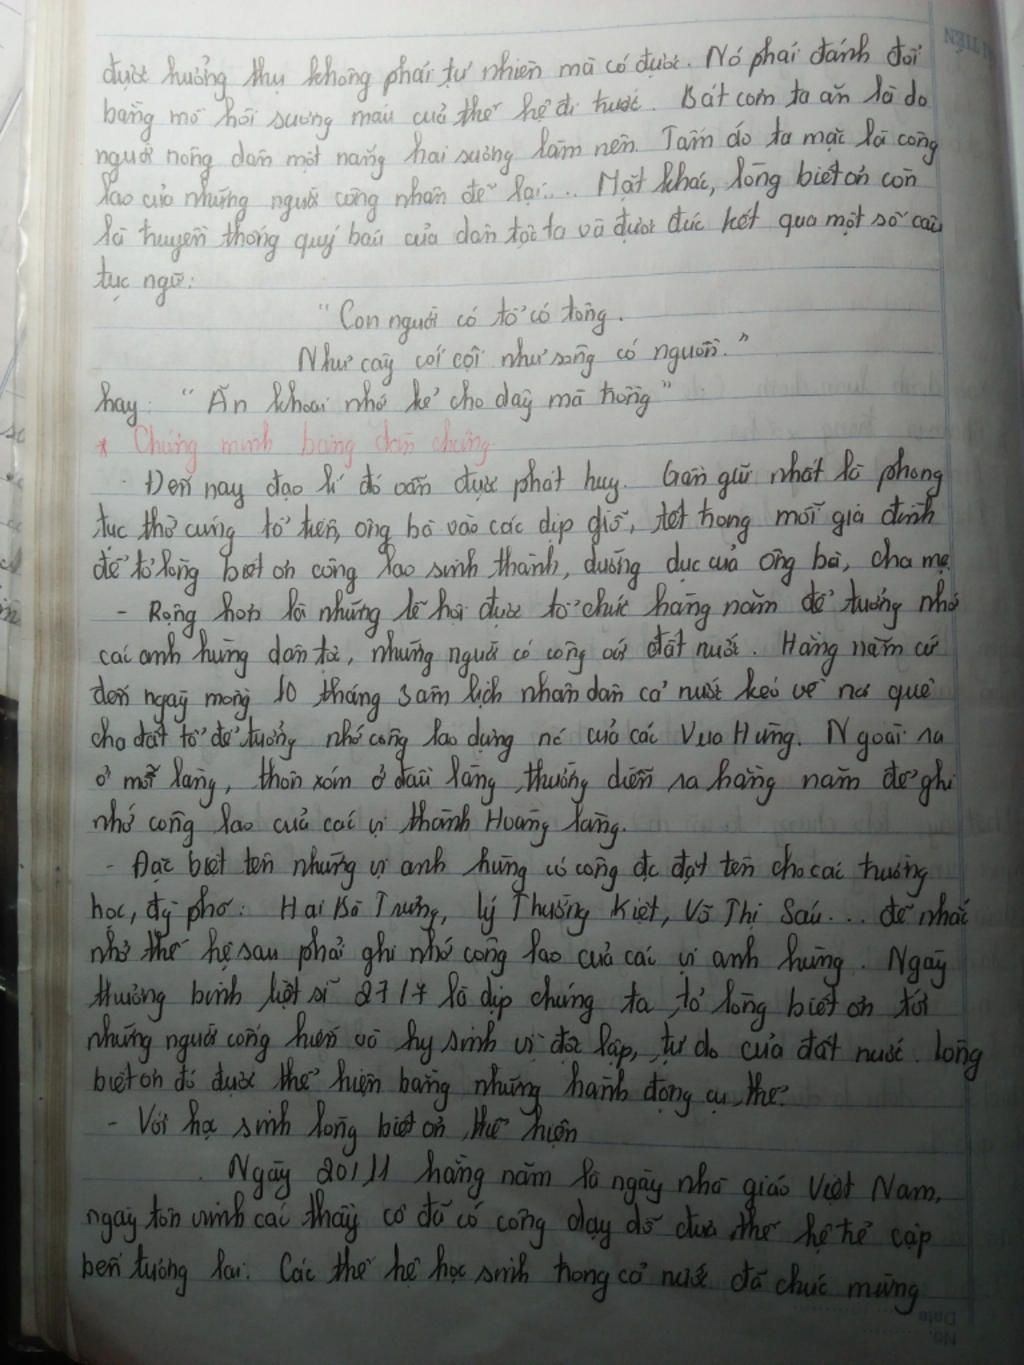 được hưởng thụ không phải tự nhiên mà có được. Nó phải đánh đổi
bằng mồ hôi sương máu của thế hệ đi trước. Bát cơm ta ăn là do
người nông dân một nắng hai sương làm nên. Tấm áo ta mặc là công
lao của những người công nhân để lại.... Mặt khác, lòng biết ơn còn
là truyền thống quý báu của dân tộc ta và được đúc kết qua một số câu
tục ngữ:
"Con người có tổ có tông.
Như cây cối cội như sông có nguồn."
hay: "Ăn khoai nhớ kẻ cho dây mà trồng"
* Chứng minh bằng dẫn chứng
- Đến nay đạo lí đó vẫn được phát huy. Gần gũi nhất là phong
tục thờ cúng tổ tiên, ông bà vào các dịp giỗ, tết trong mỗi gia đình
để tỏ lòng biết ơn công lao sinh thành, dưỡng dục của ông bà, cha mẹ.
- Rộng hơn là những lễ hội được tổ chức hàng năm để tưởng nhớ
các anh hùng dân tộc, những người có công với đất nước. Hàng năm cứ
đến ngày mồng 10 tháng 3 âm lịch nhân dân cả nước kéo về nơi quê
cha đất tổ để tưởng nhớ công lao dựng nc của các Vua Hùng. Ngoài ra
ở mỗi làng, thôn xóm ở đầu làng thường diễn ra hàng năm để ghi
nhớ công lao của các vị thành Hoàng làng.
- Đặc biệt tên những vị anh hùng có công đc đặt tên cho các trường
học, đg phố: Hai Bà Trưng, Lý Thường Kiệt, Võ Thị Sáu... để nhắc
nhở thế hệ sau phải ghi nhớ công lao của các vị anh hùng. Ngày
thương binh liệt sĩ 27/7 là dịp chúng ta tỏ lòng biết ơn tới
những người cống hiến và hy sinh vì độc lập, tự do của đất nước. Lòng
biết ơn đó được thể hiện bằng những hành động cụ thể.
- Với học sinh lòng biết ơn thể hiện
Ngày 20/11 hàng năm là ngày nhà giáo Việt Nam,
ngày tôn vinh các thầy cô đã có công dạy dỗ đưa thế hệ trẻ cập
bến tương lai. Các thế hệ học sinh trong cả nước đã chúc mừng